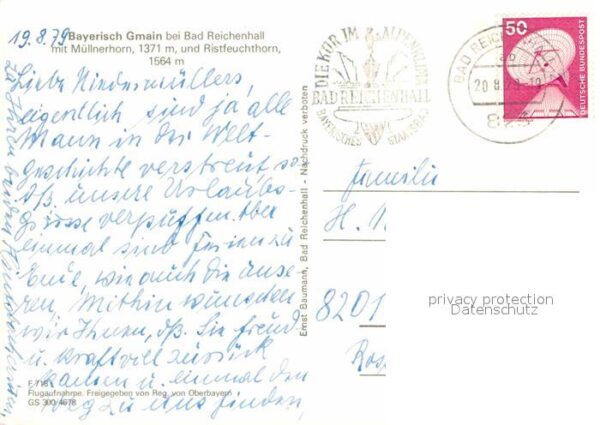 19.8.79
Bayerisch Gmain bei Bad Reichenhall
mit Müllnerhorn, 1371 m, und Ristfeuchthorn,
1564 m
Liebe Niedermüllers,
eigentlich sind ja alle
Mann in der Welt-
geschichte verstreut, so
dß. unsere Urlaubs-
grüsse verpuffen. Aber
einmal sind Ferien zu
Ende, wie auch die unse-
ren. Mithin wünschen
wir Ihnen, dß. Sie freud-
u. kraftvoll zurück
kamen u. einmal den
Weg zu uns finden,
F 718
Flugaufnahme. Freigegeben von Reg. von Oberbayern
GS 300/4678
Ernst Baumann, Bad Reichenhall - Nachdruck verboten
BAD REICHENHALL
BAYERISCHES STAATSBAD
BAD REICHENHALL
20.8.79
50
DEUTSCHE BUNDESPOST
Familie
H.
8201
Ros
privacy protection
Datenschutz